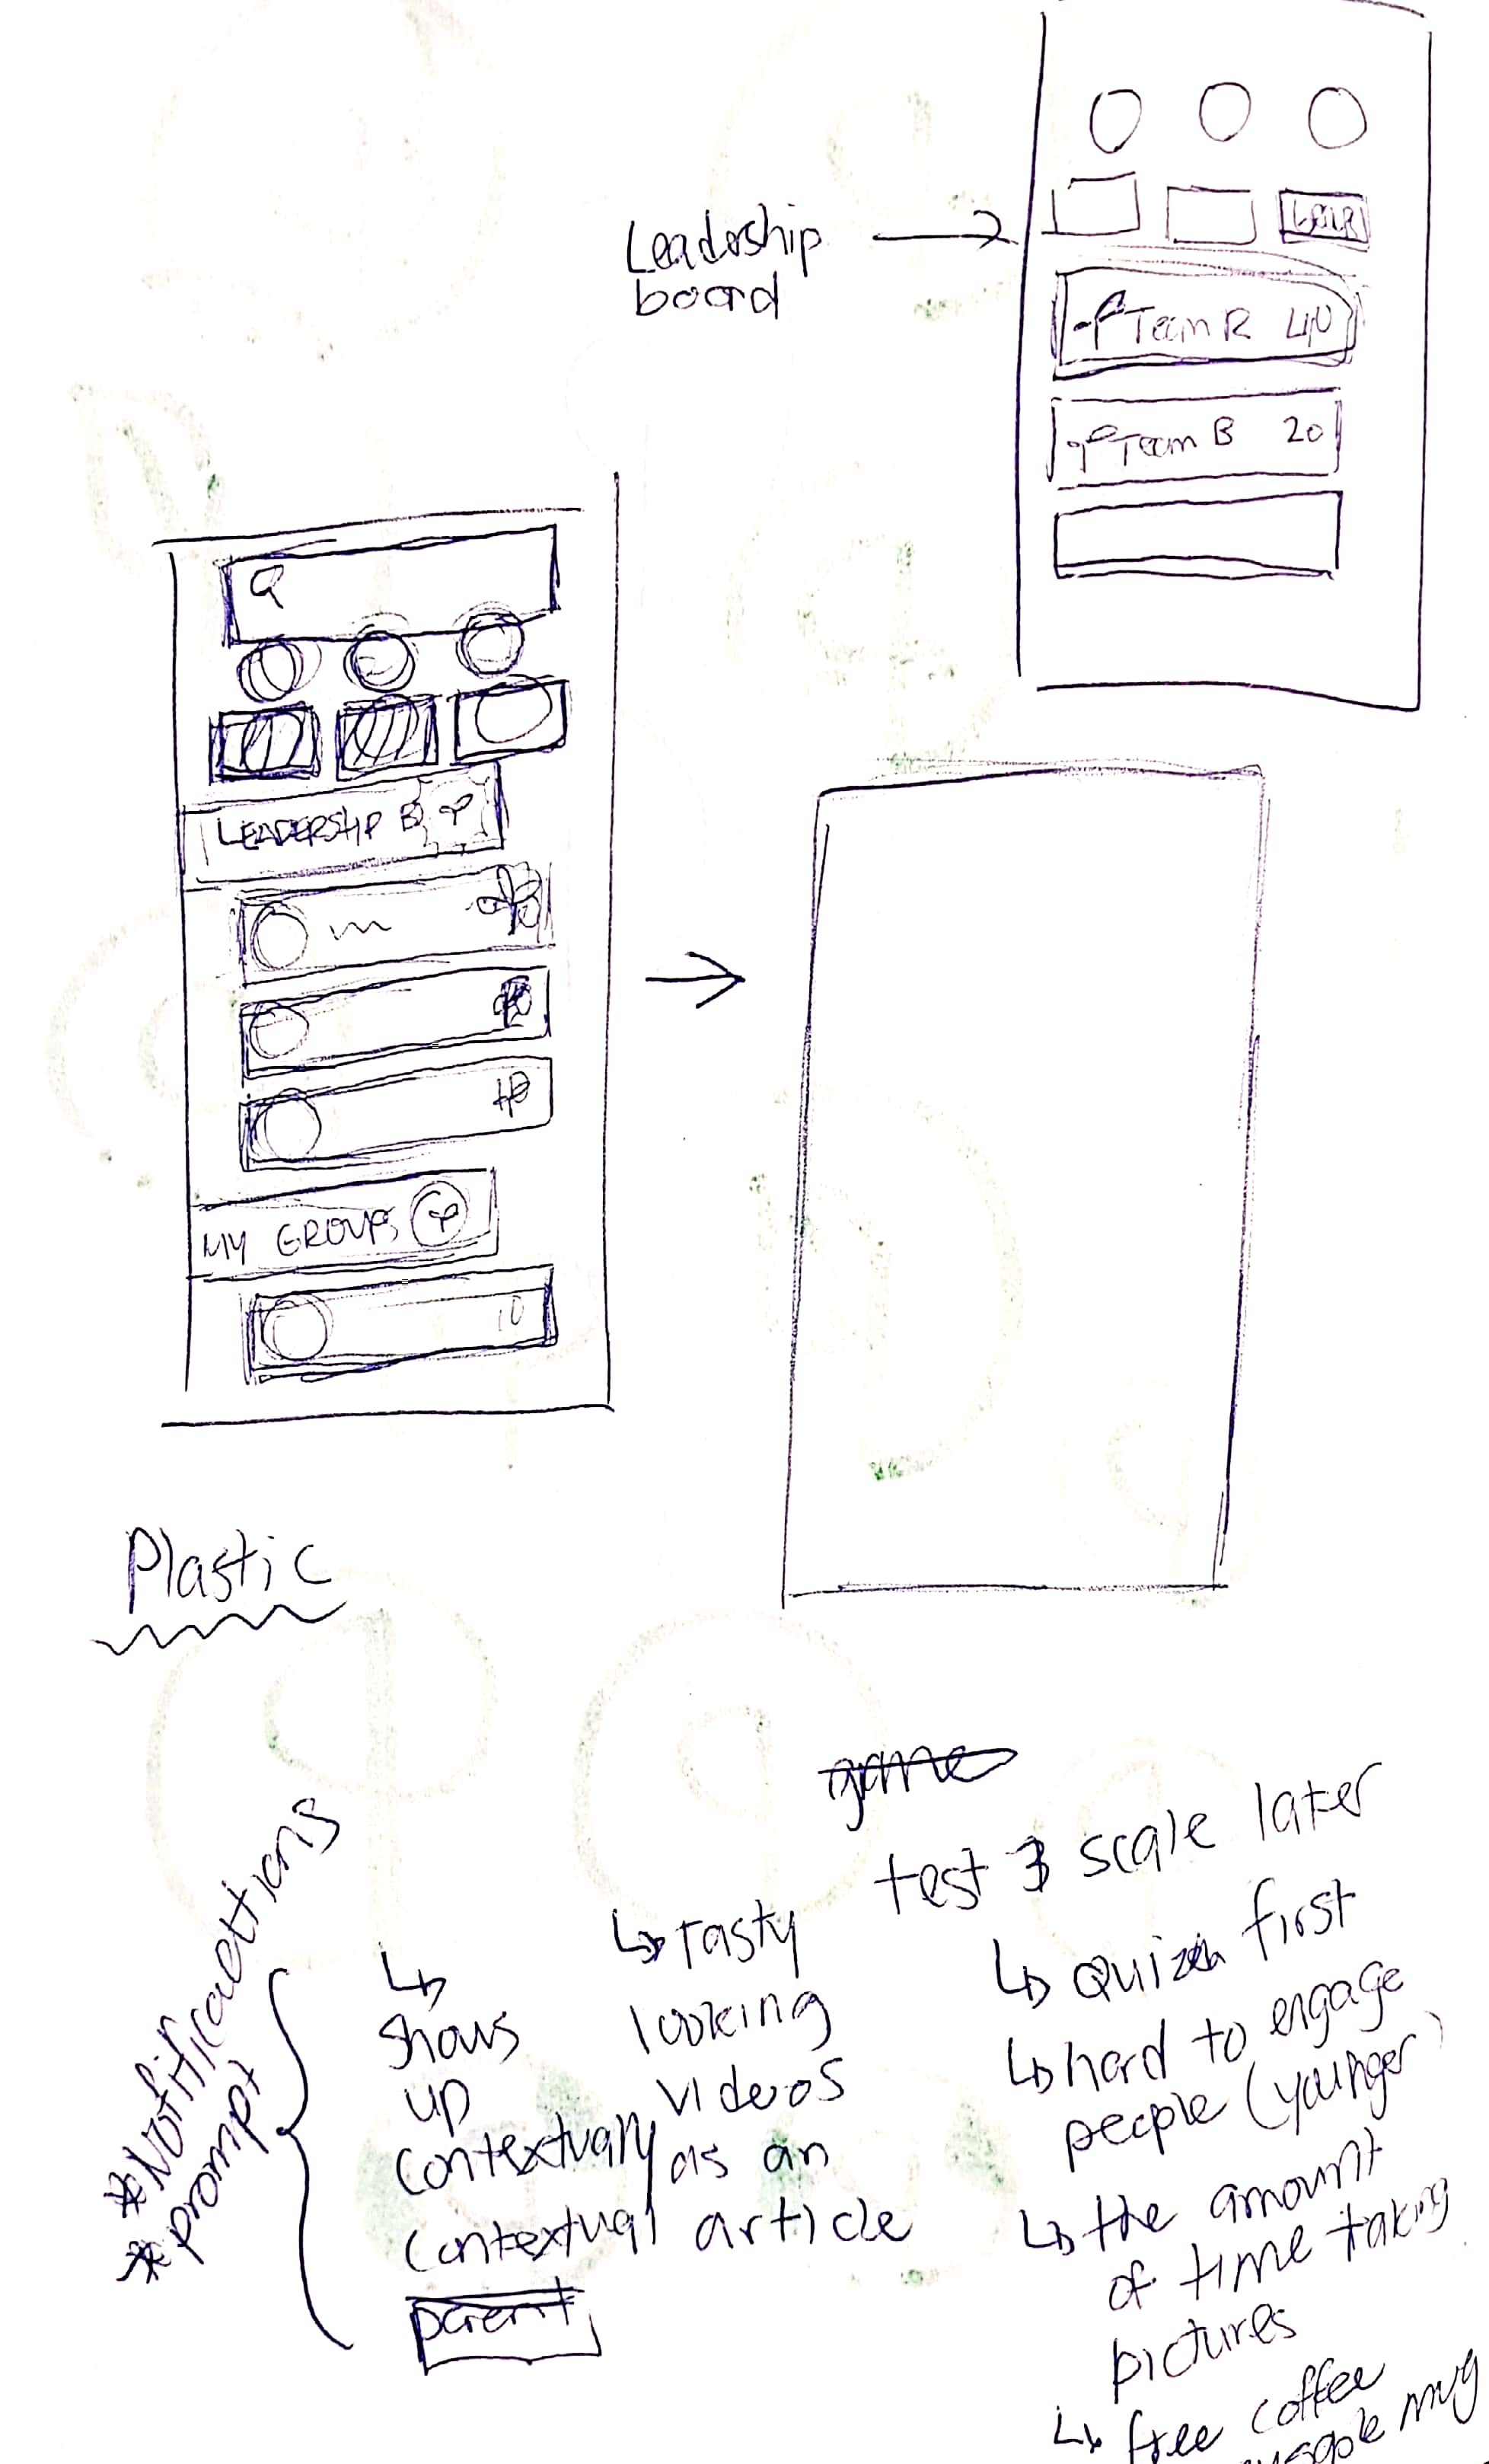 Leadership
board
Team R 40
Team B 20
LEADERSHIP B
MY GROUPS
10
Plastic
game
test & scale later
* Notifications
* prompt
↳
shows
up
contextually
contextual
parent
↳ Tasty
looking
videos
as an
article
↳ Quiz first
↳ hard to engage
people (younger)
↳ the amount
of time taking
pictures
↳ free coffee
mug